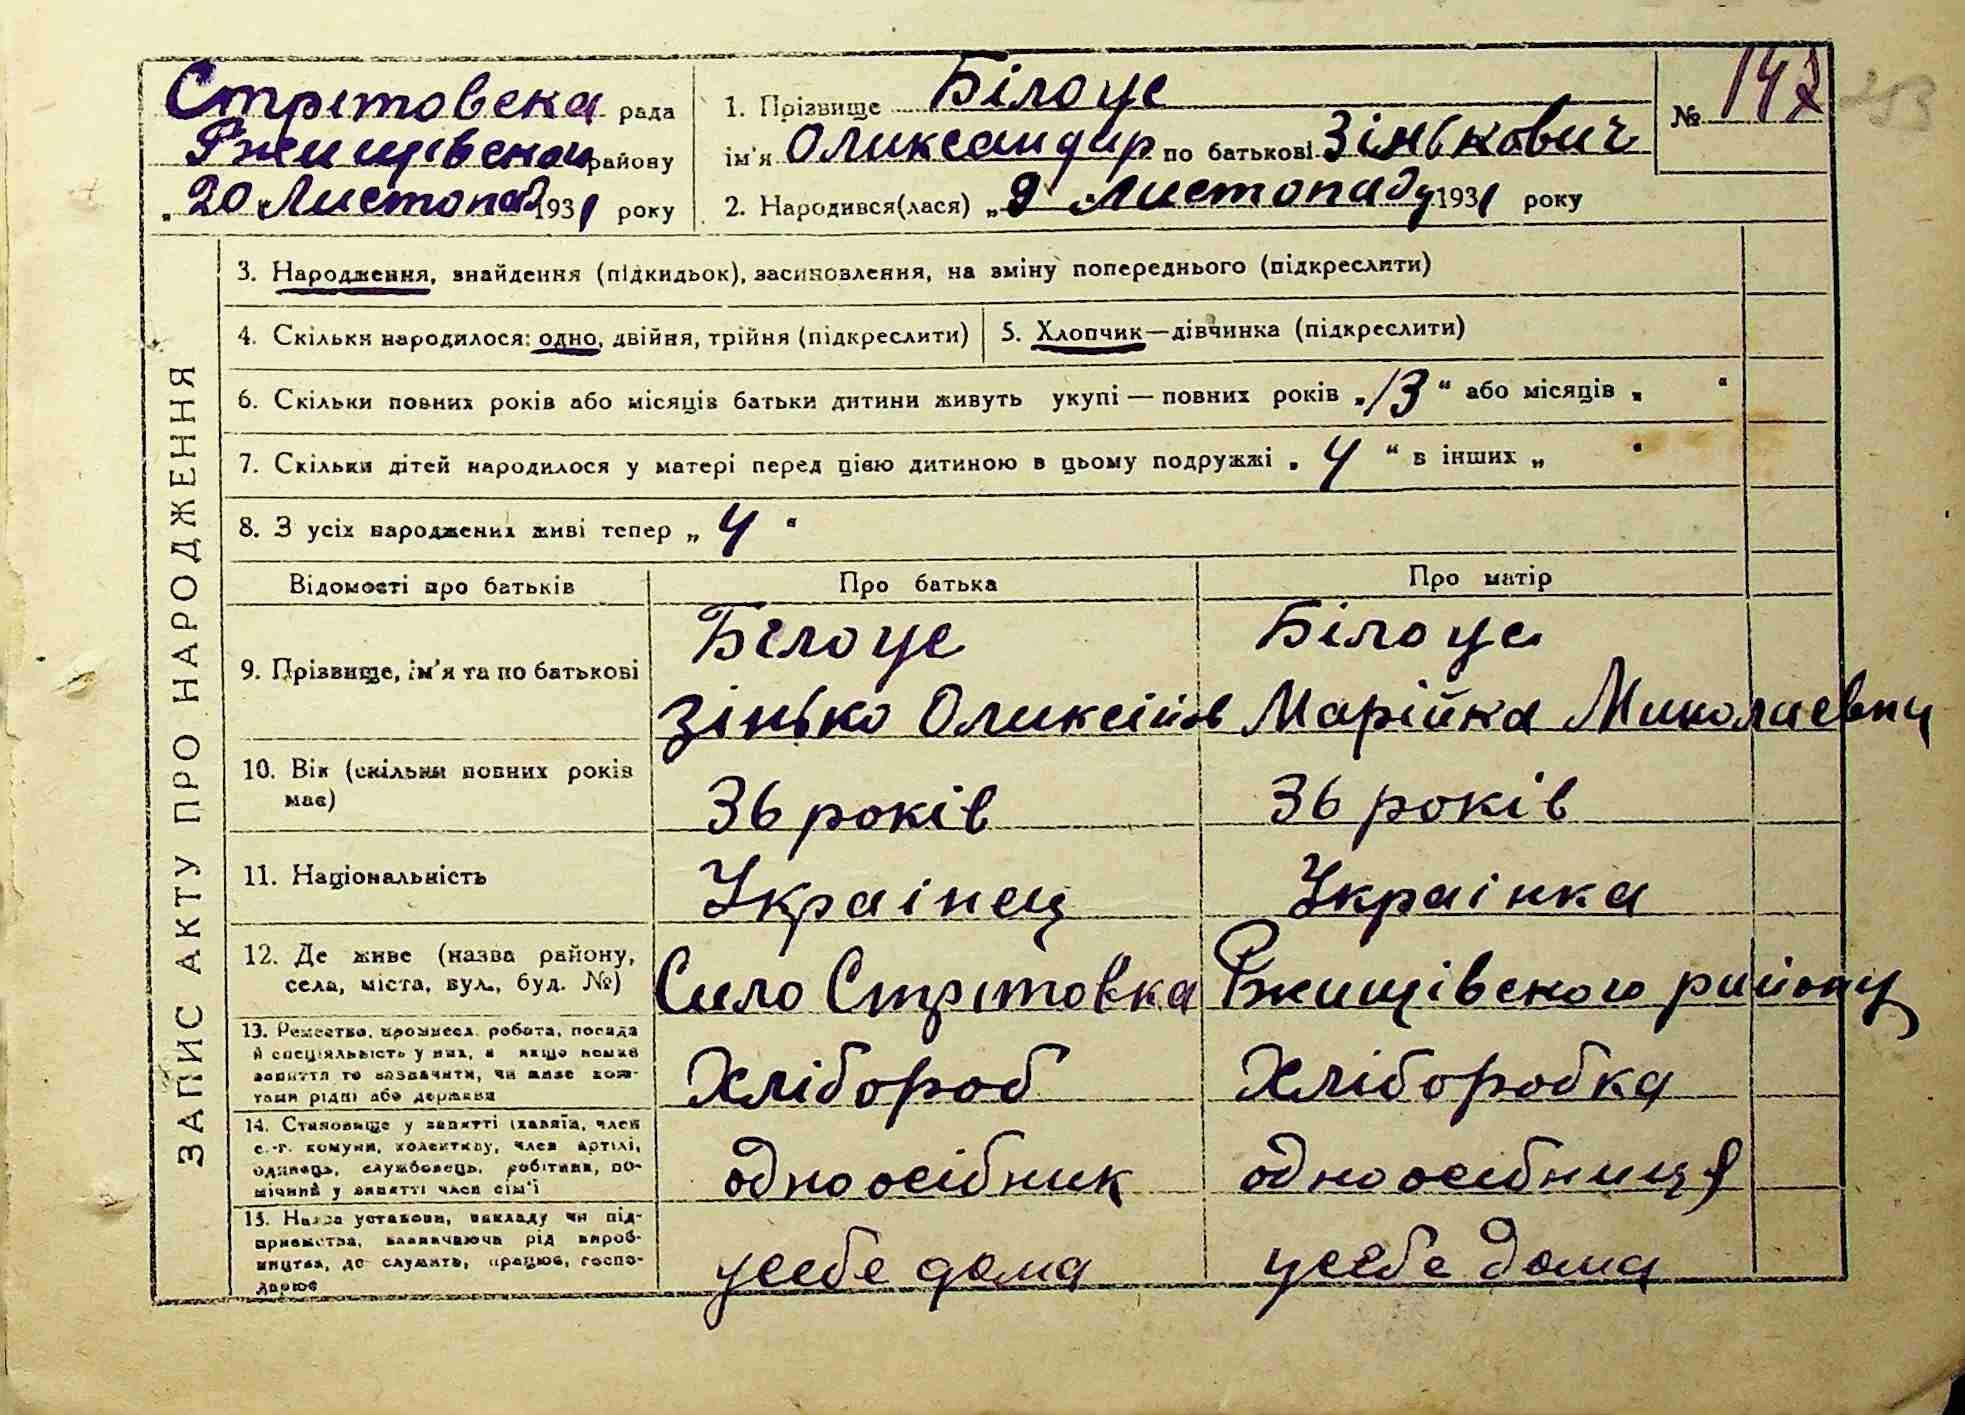 Стрітовска рада
Ржищівскои району
„20 Листопад 1931 року
1. Прізвище Білоус
ім'я Оликсандир по батькові Зінькович
№ 147
2. Народився(лася) „9 Листопаду 1931 року
ЗАПИС АКТУ ПРО НАРОДЖЕННЯ
3. Народження, знайдення (підкидьок), засиновлення, на зміну попереднього (підкреслити)
4. Скільки народилося: одно, двійня, трійня (підкреслити)
5. Хлопчик—дівчинка (підкреслити)
6. Скільки повних років або місяців батьки дитини живуть укупі — повних років „13“ або місяців „ “
7. Скільки дітей народилося у матері перед цією дитиною в цьому подружжі „4“ в інших „ “
8. З усіх народжених живі тепер „4“
Відомості про батьків Про батька Про матір
9. Прізвище, ім'я та по батькові
Білоус Білоус
Зінько Оликсійов Марійка Миколаевни
10. Вік (скільки повних років
має)
36 років 36 років
11. Національність Украінец Украінка
12. Де живе (назва району,
села, міста, вул., буд. №)
Сило Стрітовка Ржищівского району
13. Ремество, промисел, робота, посада
й спеціяльність у них, а якщо немає
заняття то зазначити, чи живе кош-
тами рідні або держави
Хлібороб Хліборобка
14. Становище у занятті (хазяїн, член
с.-г. комуни, колективу, член артілі,
одинець, службовець, робітник, по-
мічний у занятті член сім'ї
одноосібник одноосібниця
15. Назва установи, закладу чи під-
приємства, зазначаючи рід вироб-
ництва, де служить, працює, госпо-
дарює
усебе дома усебе дома